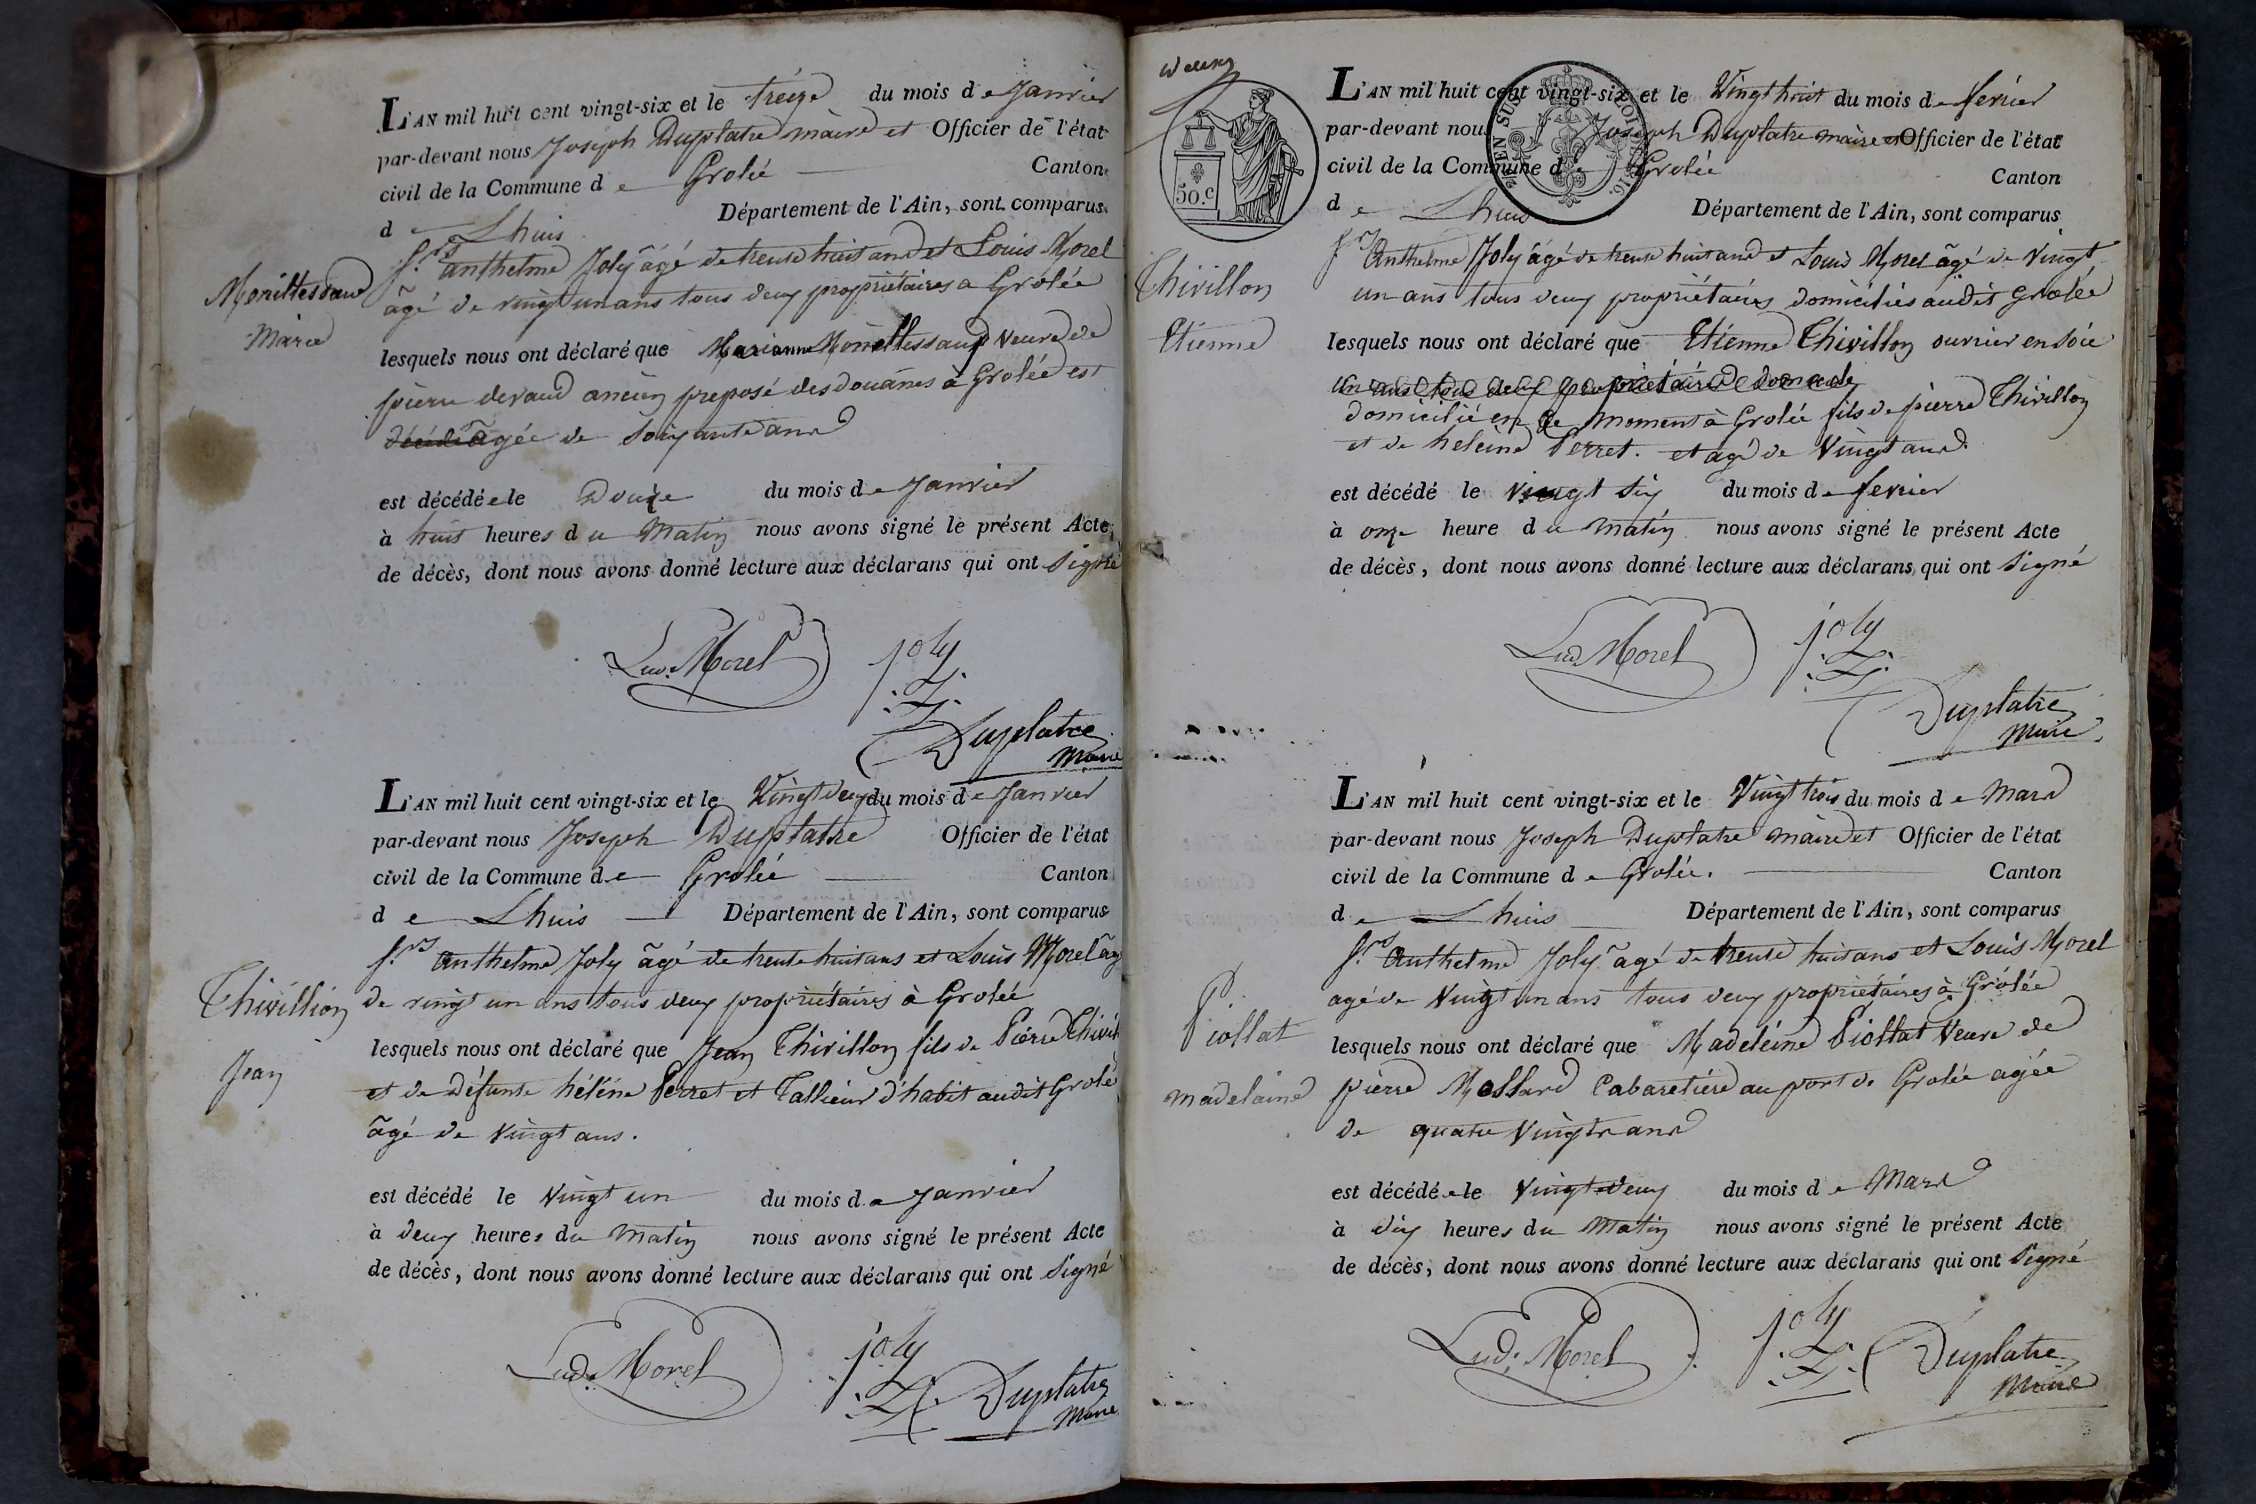 L'AN mil huit cent vingt-six et le treize du mois de Janvier
par-devant nous Joseph Duplatre maire et Officier de l'état
civil de la Commune de Grolée Canton
de Lhuis Département de l'Ain, sont comparus
S.rs anthelme Joly âgé de trente huit ans et Louis Morel
Morillessaud
Marie
âgé de vingt un ans tous deux propriétaires a Grolée
lesquels nous ont déclaré que Marianne Morillessaud veuve de
pierre devaud ancien preposé des douanes à Grolée est
décédé âgée de soixante ans
est décédée le Douze du mois de Janvier
à huit heures du Matin nous avons signé le présent Acte
de décès, dont nous avons donné lecture aux déclarans qui ont signé
Lud. Morel Joly
Duplatre
Maire
L'AN mil huit cent vingt-six et le Vingt deux du mois de Janvier
par-devant nous Joseph Duplatre Officier de l'état
civil de la Commune de Grolée Canton
de Lhuis Département de l'Ain, sont comparus
S.rs Anthelme Joly âgé de trente huit ans et Louis Morel âgé
Thivillion
Jean
de vingt un ans tous deux propriétaires à Grolée
lesquels nous ont déclaré que Jean Thivillon fils de Pierre Thivil
et de défunte hélène Perret et Tallieur d'habit audit Grolé
âgé de vingt ans.
est décédé le vingt un du mois de Janvier
à deux heures du Matin nous avons signé le présent Acte
de décès, dont nous avons donné lecture aux déclarans qui ont Signé
Lud. Morel Joly Duplatre
Maire
50.c
L'AN mil huit cent vingt-six et le Vingt huit du mois de fevrier
par-devant nous Joseph Duplatre maire et Officier de l'état
civil de la Commune de Grolée Canton
de Lhuis Département de l'Ain, sont comparus
S.rs Anthelme Joly âgé de trente huit ans et Louis Morel âgé de Vingt
Thivillon
Etienne
un ans tous deux propriétaires domiciliés audit Grolée
lesquels nous ont déclaré que Etienne Thivillon ouvrier en soie
un ans tous deux propriétaires
domicilié en ce moment à Grolée fils de pierre Thivillon
et de heleine Perret. et agé de Vingt ans
est décédé le vingt six du mois de fevrier
à onze heure du matin nous avons signé le présent Acte
de décès, dont nous avons donné lecture aux déclarans, qui ont signé
Lud Morel Joly
Duplatre
Maire
L'AN mil huit cent vingt-six et le Vingt trois du mois de Mars
par-devant nous Joseph Duplatre maire et Officier de l'état
civil de la Commune de Grolée. Canton
de Lhuis Département de l'Ain, sont comparus
S.rs Anthelme Joly âgé de trente huit ans et Louis Morel
Piollat
madelaine
agé de Vingt un ans tous deux propriétaires à Grôlée
lesquels nous ont déclaré que Madeleine Piollat Veuve de
pierre Mollard Cabaretière au port de Grolée agée
de quatre Vingts ans
est décédée le Vingt deux du mois de Mars
à dix heures du Matin nous avons signé le présent Acte
de décès, dont nous avons donné lecture aux déclarans qui ont Signé
Lud. Morel Joly Duplatre
Maire